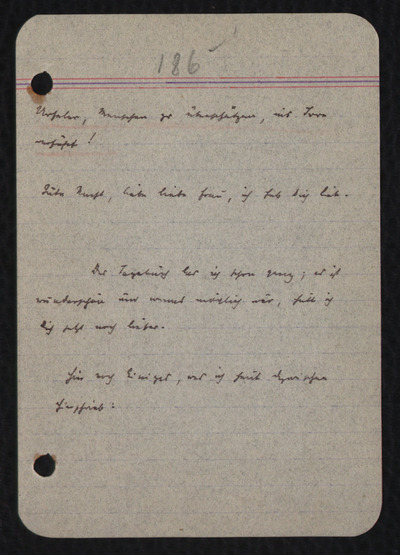 186
Urfehler, Menschen zu überschätzen, ins Irre
erhöht!
Gute Nacht, liebe liebe Frau, ich hab Dich lieb.
Das Tagebuch las ich schon ganz; es ist
wunderschön und wenns möglich wär, hätt ich
Dich jetzt noch lieber.
Hier noch Einiges, was ich heut dazwischen
hinschrieb: